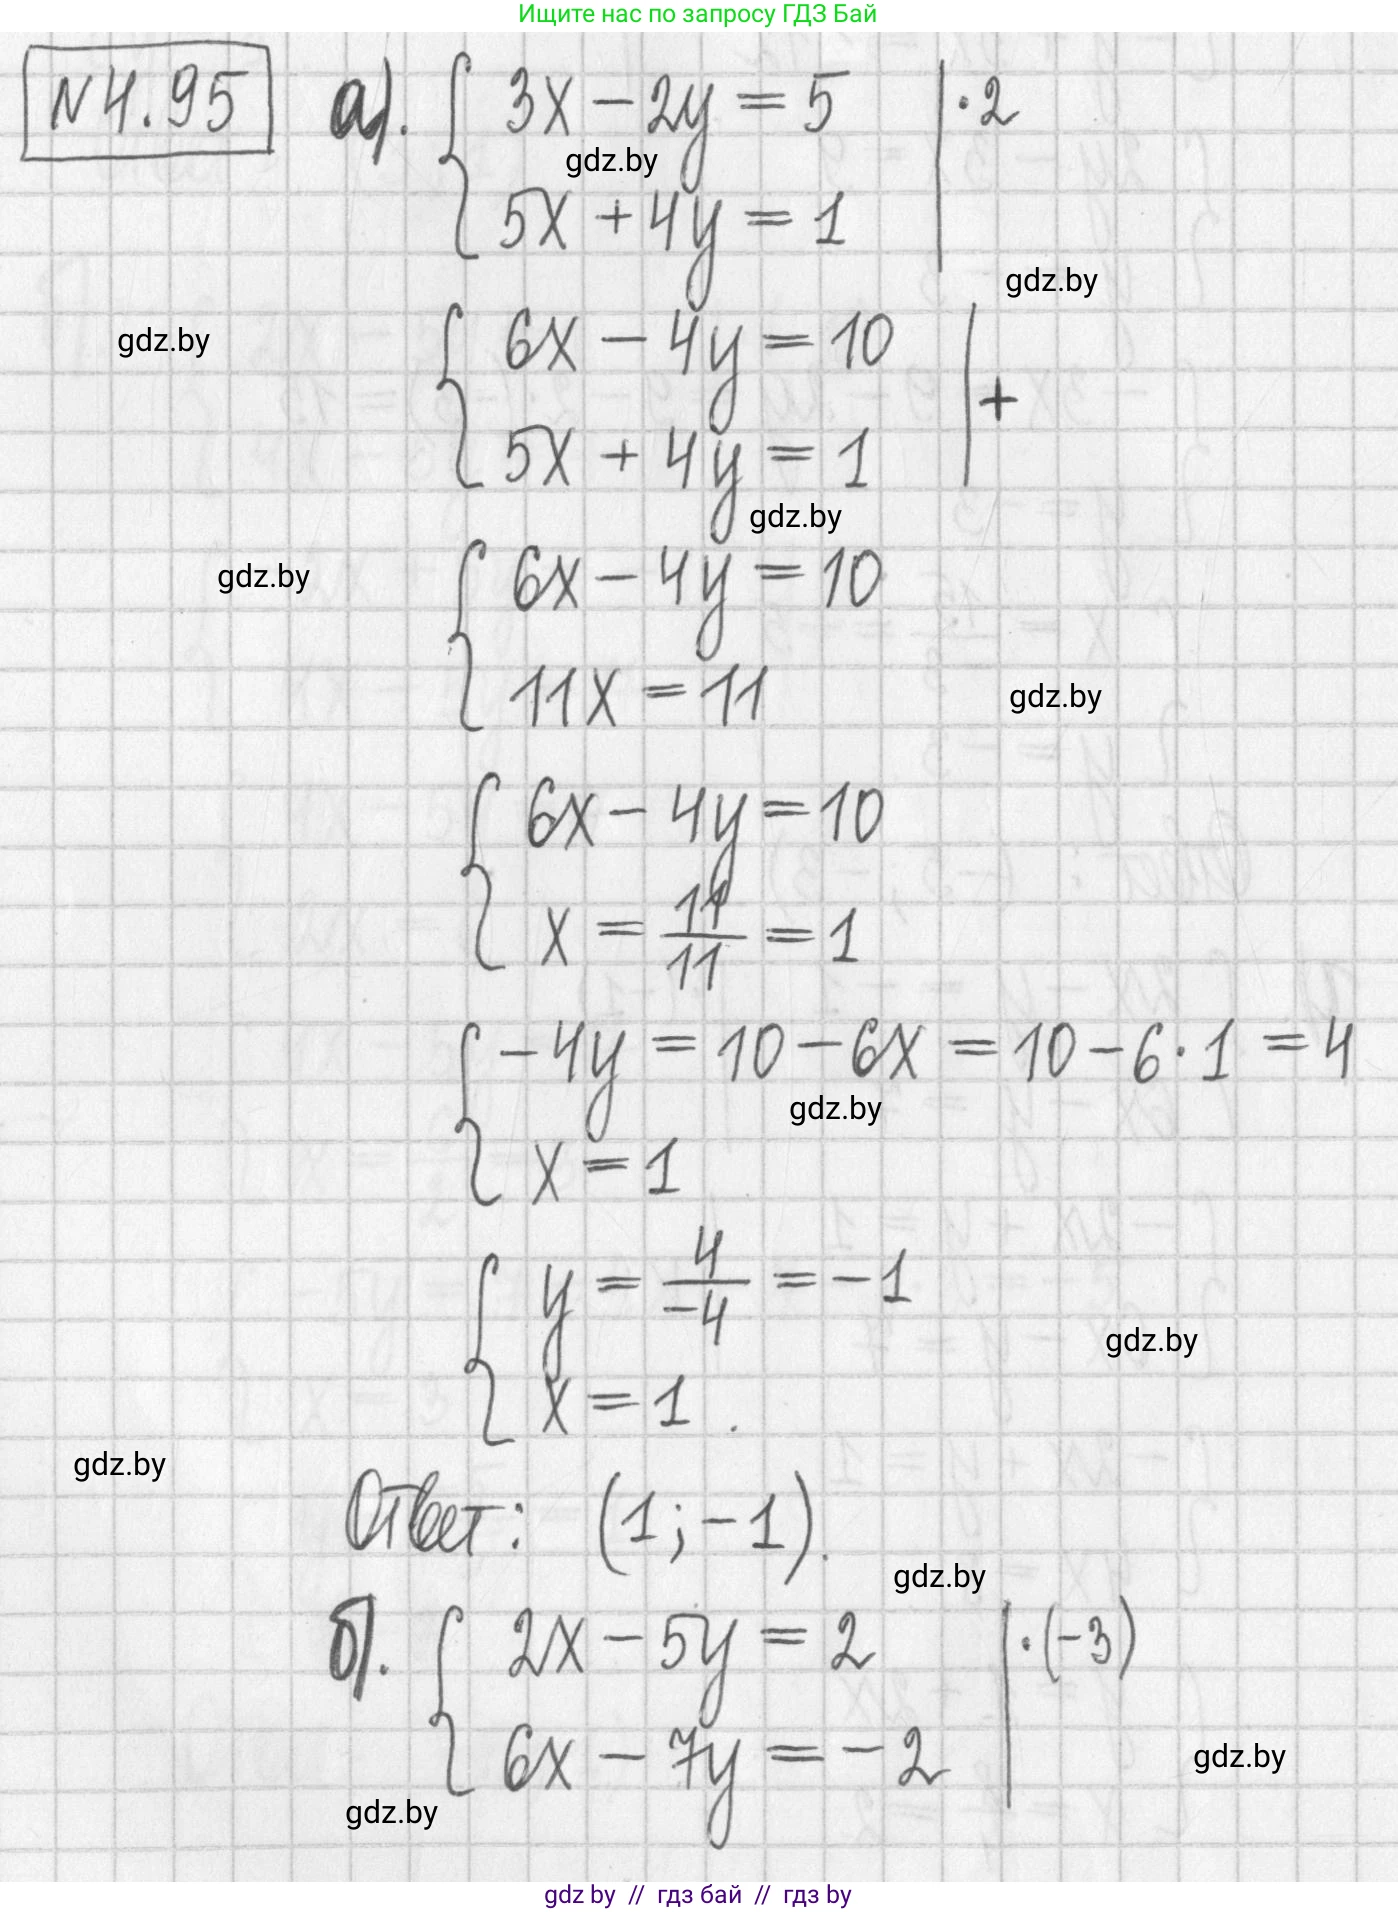 Ищите нас по запросу ГДЗ Бай
N 4.95 а). { 3x - 2y = 5 | · 2
gdz.by
5x + 4y = 1
gdz.by
{ 6x - 4y = 10
gdz.by
| +
5x + 4y = 1
gdz.by
{ 6x - 4y = 10
gdz.by
11x = 11
gdz.by
{ 6x - 4y = 10
x = 11/11 = 1
{ -4y = 10 - 6x = 10 - 6 · 1 = 4
gdz.by
x = 1
{ y = 4/-4 = -1
gdz.by
x = 1 .
gdz.by
Ответ: (1; -1).
gdz.by
б). { 2x - 5y = 2 | · (-3)
6x - 7y = -2
gdz.by
gdz.by
gdz by // гдз бай // гдз by